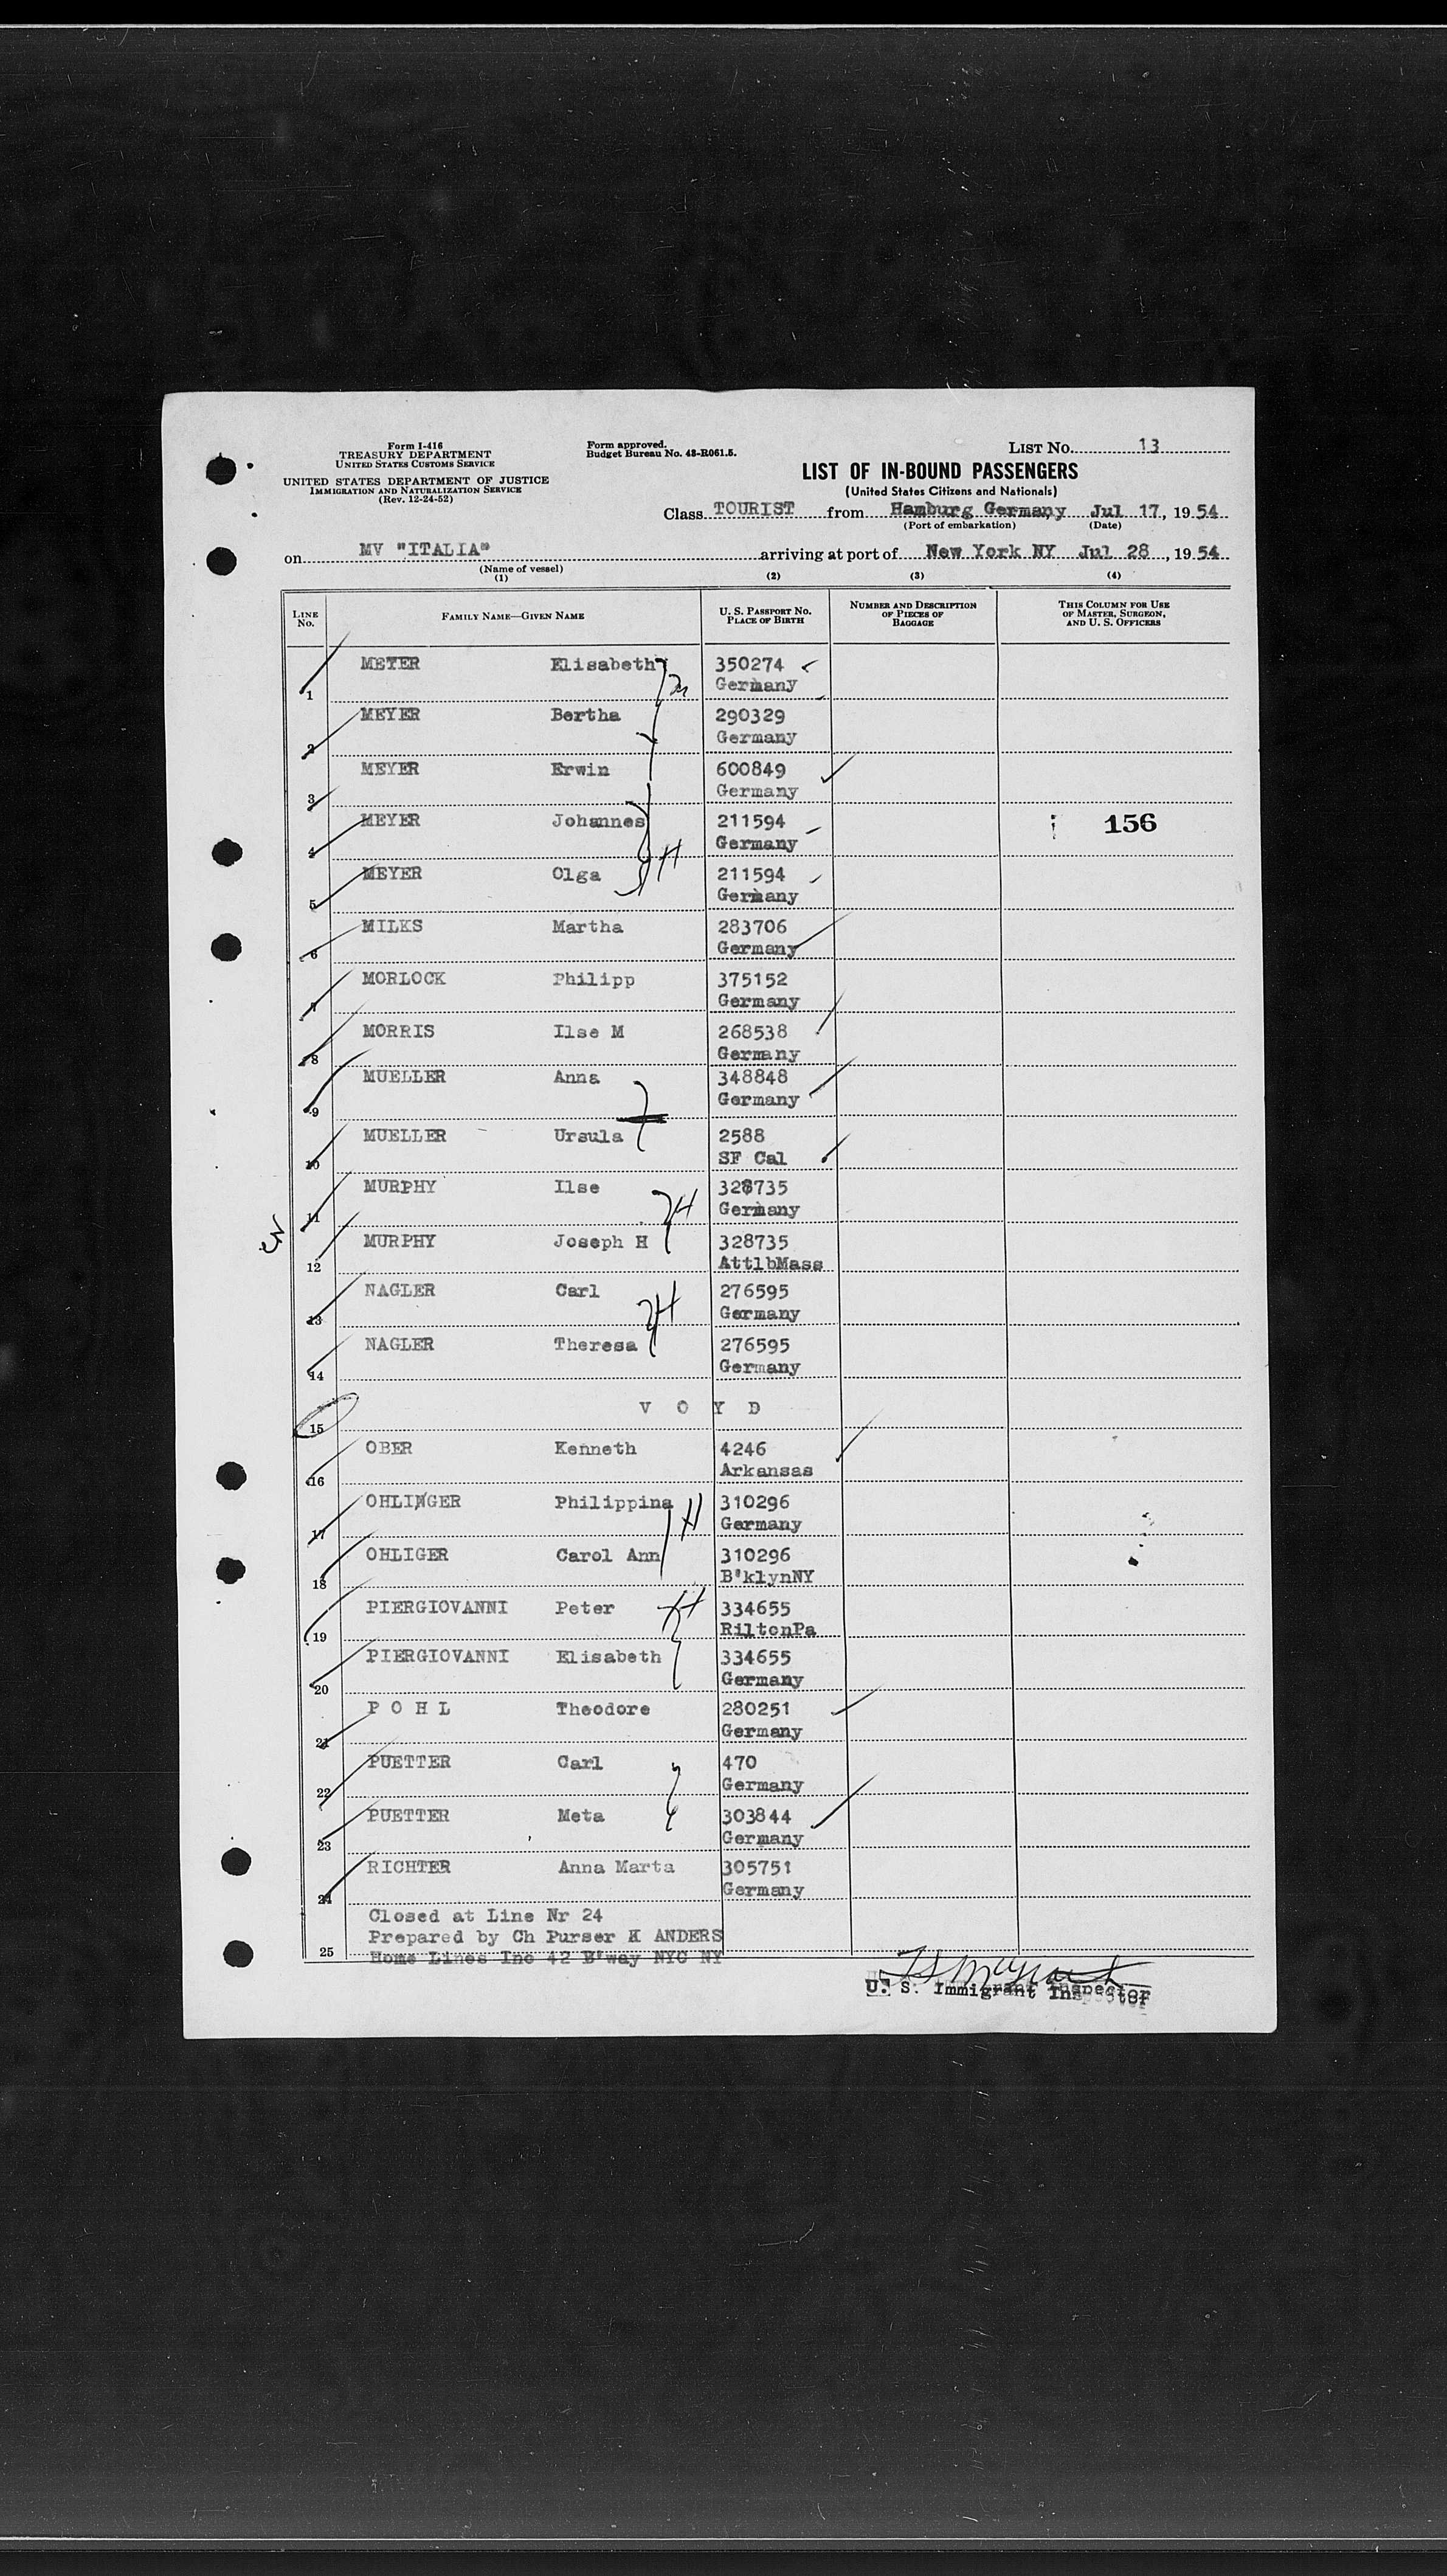 Form I-416
TREASURY DEPARTMENT
UNITED STATES CUSTOMS SERVICE
UNITED STATES DEPARTMENT OF JUSTICE
IMMIGRATION AND NATURALIZATION SERVICE
(Rev. 12-24-52)
Form approved.
Budget Bureau No. 43-R061.5.
LIST NO. 13
LIST OF IN-BOUND PASSENGERS
(United States Citizens and Nationals)
Class TOURIST from Hamburg Germany Jul 17, 1954
(Port of embarkation) (Date)
on MV "ITALIA" arriving at port of New York NY Jul 28, 1954
(Name of vessel)
(1) (2) (3) (4)
LINE NO. FAMILY NAME—GIVEN NAME U. S. PASSPORT NO. PLACE OF BIRTH NUMBER AND DESCRIPTION OF PIECES OF BAGGAGE THIS COLUMN FOR USE OF MASTER, SURGEON, AND U. S. OFFICERS
MEYER Elisabeth 350274
1 Germany
MEYER Bertha 290329
2 Germany
MEYER Erwin 600849
3 Germany
MEYER Johannes 211594 156
4 Germany
MEYER Olga 211594
5 Germany
MILKS Martha 283706
6 Germany
MORLOCK Philipp 375152
7 Germany
MORRIS Ilse M 268538
8 Germany
MUELLER Anna 348848
9 Germany
MUELLER Ursula 2588
10 SF Cal
MURPHY Ilse 328735
11 Germany
MURPHY Joseph H 328735
12 AttlbMass
NAGLER Carl 276595
13 Germany
NAGLER Theresa 276595
14 Germany
V O Y D
15
OBER Kenneth 4246
16 Arkansas
OHLINGER Philippina 310296
17 Germany
OHLIGER Carol Ann 310296
18 B'klynNY
PIERGIOVANNI Peter 334655
19 RiltonPa
PIERGIOVANNI Elisabeth 334655
20 Germany
P O H L Theodore 280251
21 Germany
PUETTER Carl 470
22 Germany
PUETTER Meta 303844
23 Germany
RICHTER Anna Marta 305751
24 Germany
Closed at Line Nr 24
Prepared by Ch Purser K ANDERS
25 Home Lines Inc 42 B'way NYC NY
U. S. Immigrant Inspector